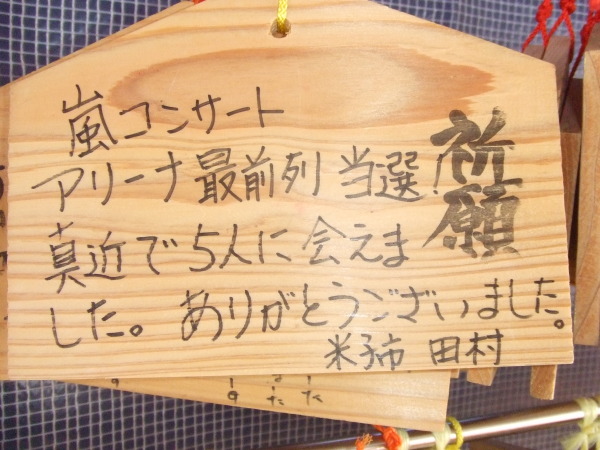 祈願
嵐コンサート
アリーナ最前列当選!
真近で5人に会えま
した。ありがとうございました。
米子市 田村